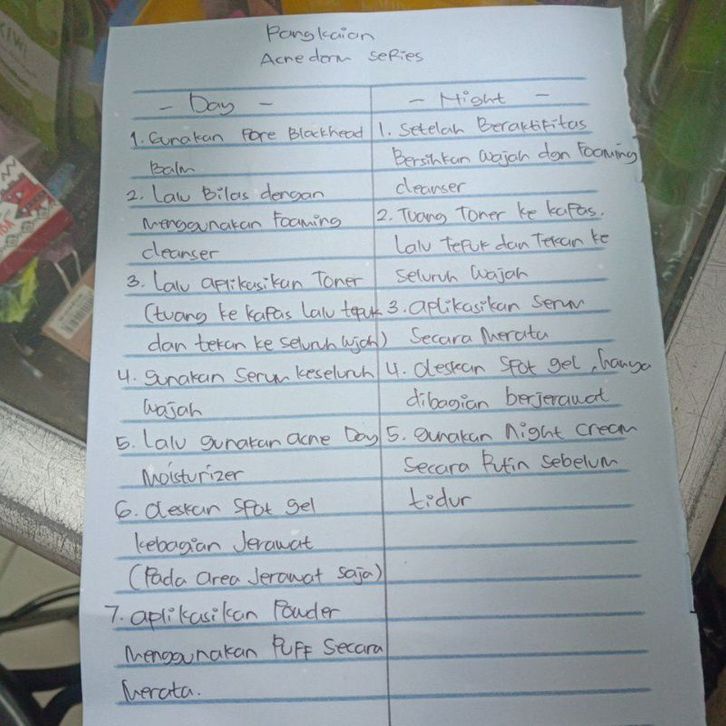 Pangkaian
Acnedorm Series
- Day -
1. Gunakan Pore Blackhead
Balm
2. Lalu Bilas dengan
Menggunakan Foaming
cleanser
3. Lalu aplikasikan Toner
(tuang ke kapas Lalu tepuk
dan tekan ke seluruh wjah)
4. gunakan Serum keseluruh
wajah
5. Lalu gunakan acne Day
Moisturizer
6. oleskan Spot gel
kebagian Jerawat
(Pada area Jerawat saja)
7. aplikasikan Powder
Menggunakan Puff Secara
Merata.
- Night -
1. Setelah Beraktifitas
Bersihkan wajah dan Foaming
cleanser
2. Tuang Toner ke kapas.
Lalu tepuk dan Tekan ke
Seluruh wajah
3. aplikasikan Serum
Secara Merata
4. oleskan Spot gel, hanya
dibagian berjerawat
5. gunakan Night cream
Secara Rutin Sebelum
tidur
KIWI